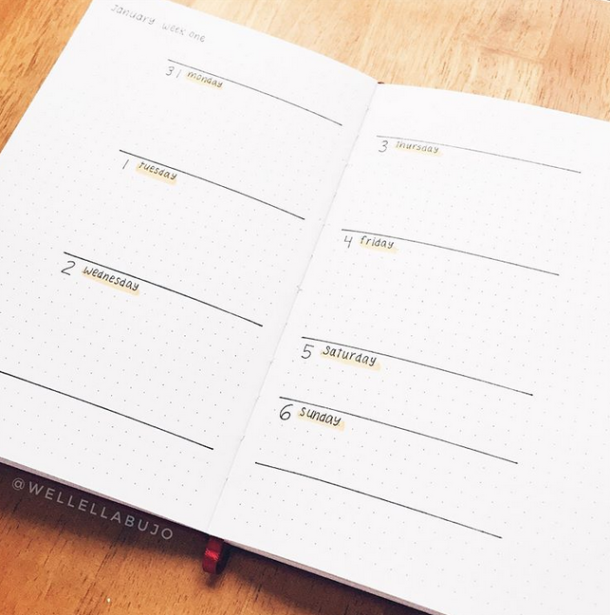 January week one
31 monday
1 tuesday
2 wednesday
3 thursday
4 friday
5 saturday
6 sunday
@WELLELLABUJO